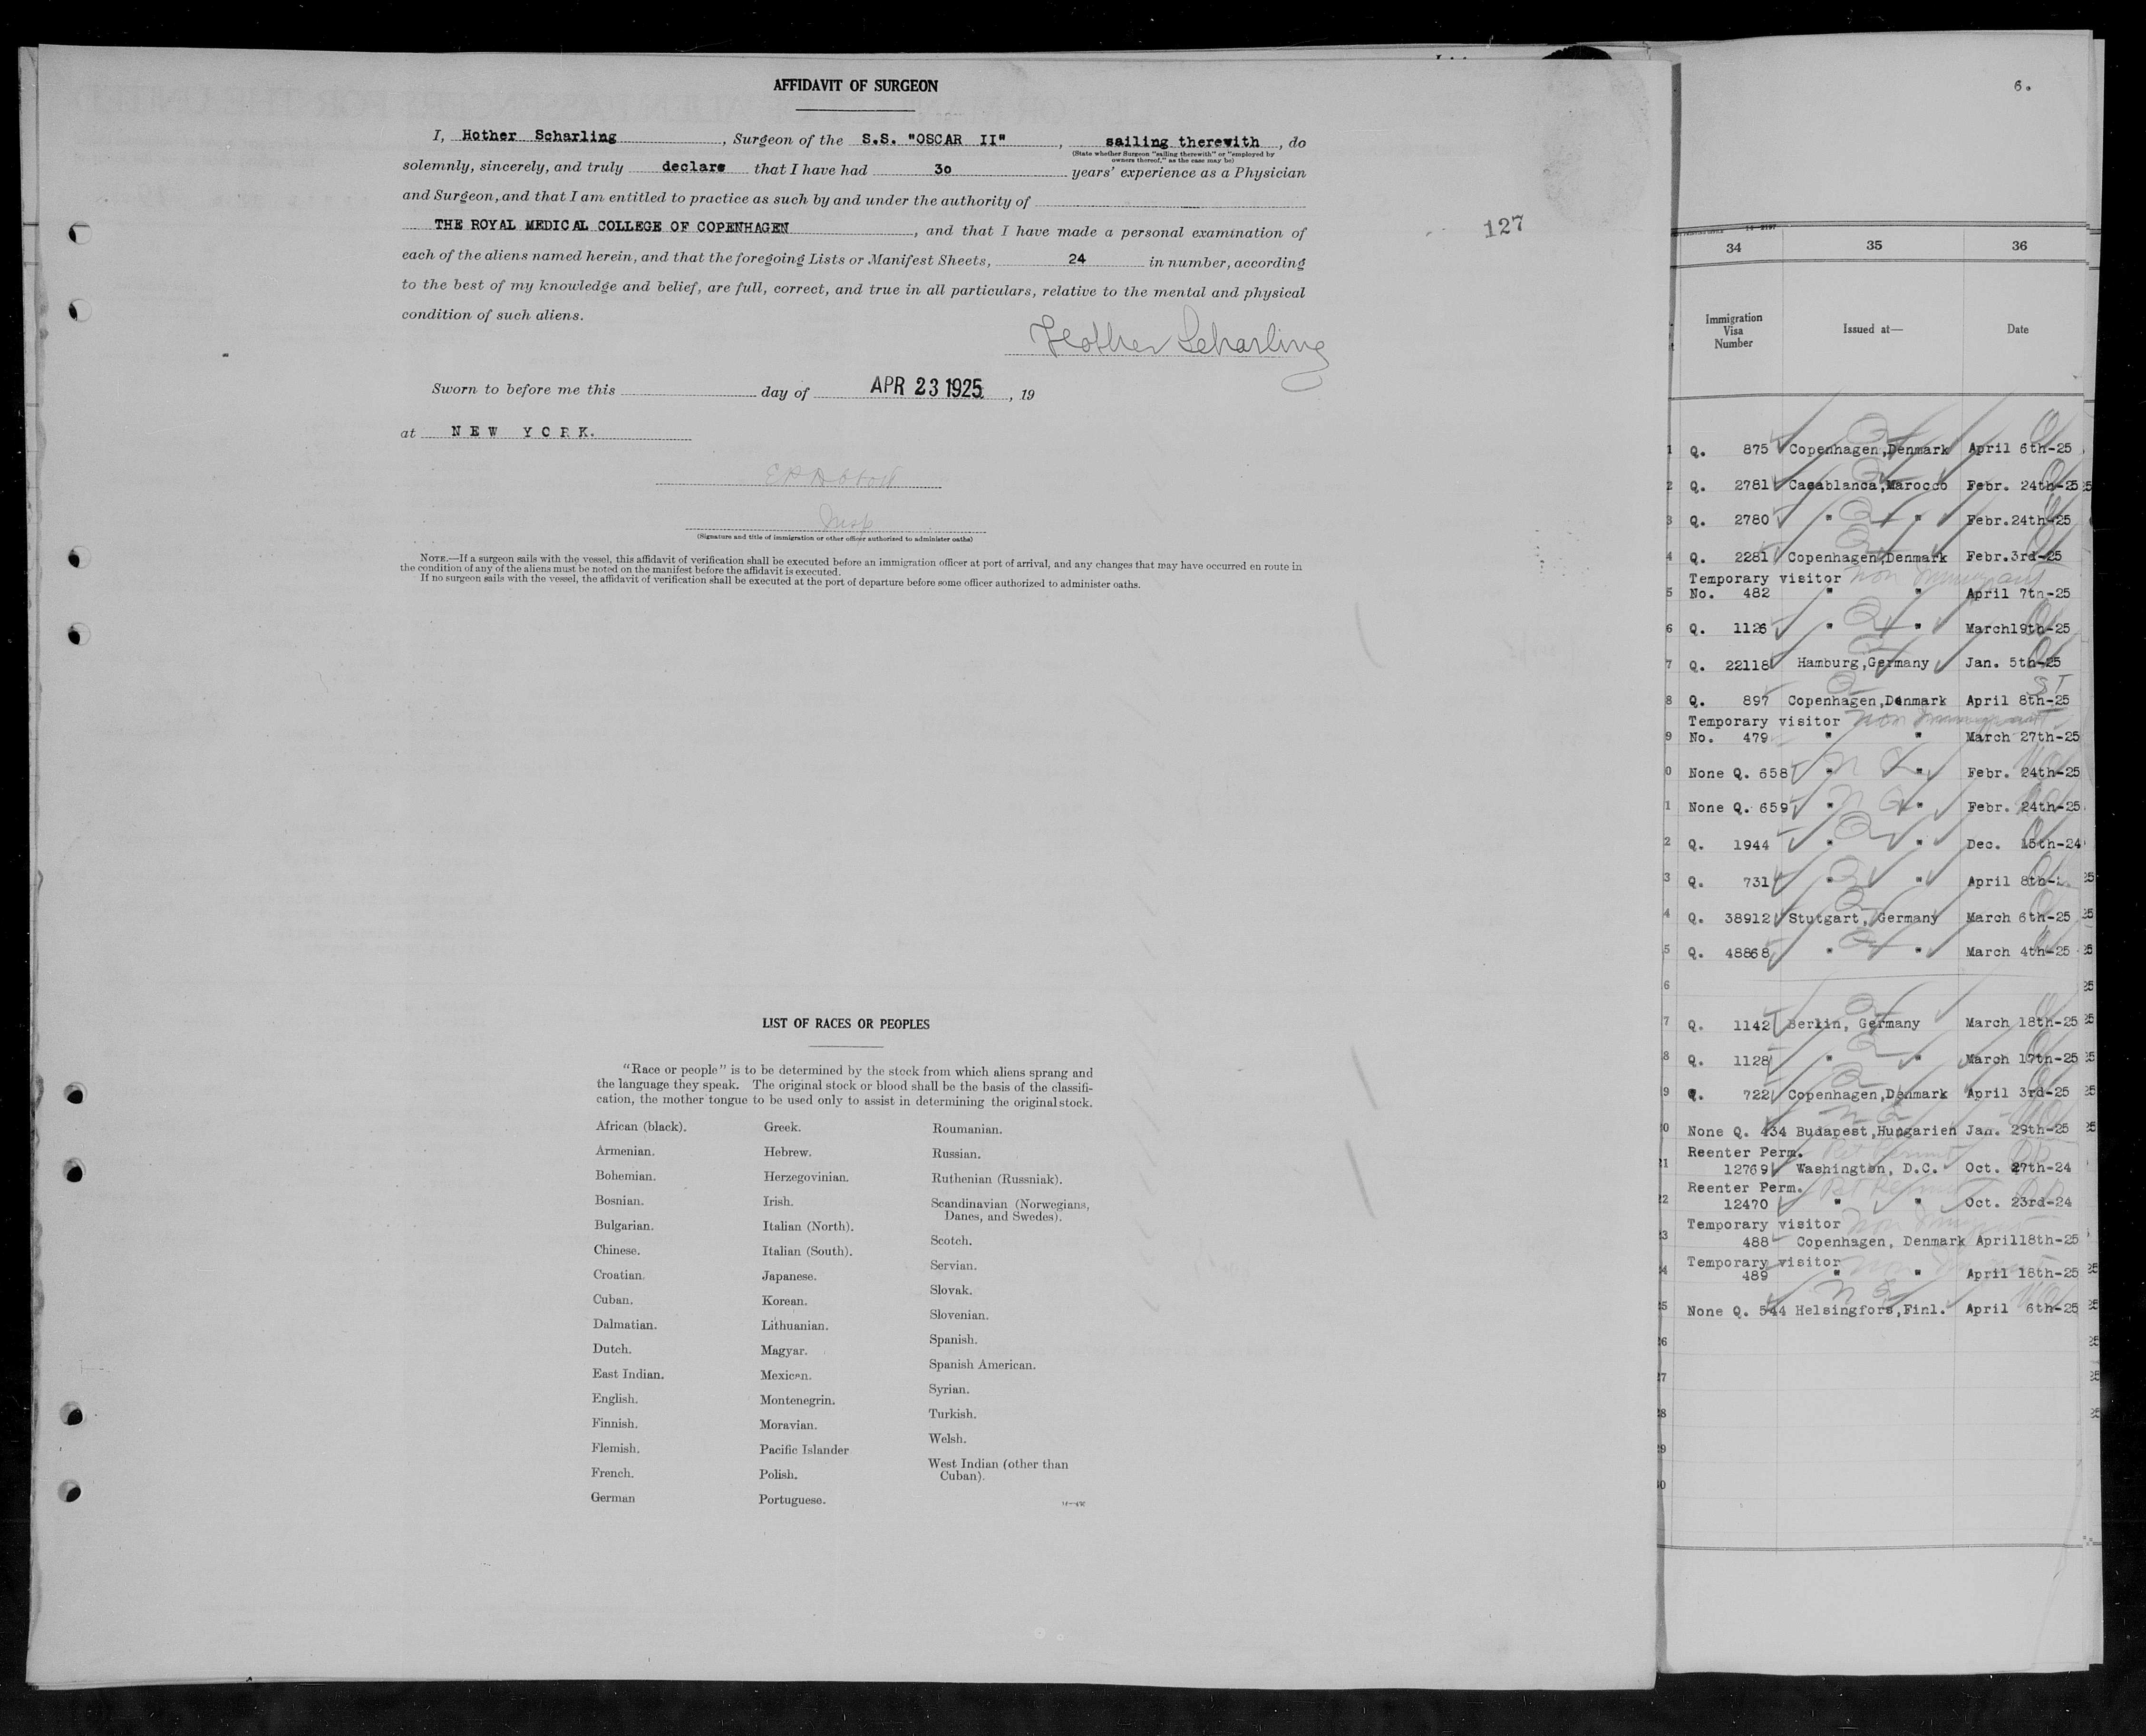 AFFIDAVIT OF SURGEON
I, Hother Scharling, Surgeon of the S.S. "OSCAR II", sailing therewith, do
(State whether Surgeon "sailing therewith" or "employed by
owners thereof," as the case may be)
solemnly, sincerely, and truly declare that I have had 30 years' experience as a Physician
and Surgeon, and that I am entitled to practice as such by and under the authority of
THE ROYAL MEDICAL COLLEGE OF COPENHAGEN, and that I have made a personal examination of
each of the aliens named herein, and that the foregoing Lists or Manifest Sheets, 24 in number, according
to the best of my knowledge and belief, are full, correct, and true in all particulars, relative to the mental and physical
condition of such aliens.
Hother Scharling
Sworn to before me this day of APR 23 1925, 19
at NEW YORK.
E P Abbott
Insp
(Signature and title of immigration or other officer authorized to administer oaths)
NOTE.—If a surgeon sails with the vessel, this affidavit of verification shall be executed before an immigration officer at port of arrival, and any changes that may have occurred en route in
the condition of any of the aliens must be noted on the manifest before the affidavit is executed.
If no surgeon sails with the vessel, the affidavit of verification shall be executed at the port of departure before some officer authorized to administer oaths.
127
LIST OF RACES OR PEOPLES
"Race or people" is to be determined by the stock from which aliens sprang and
the language they speak. The original stock or blood shall be the basis of the classifi-
cation, the mother tongue to be used only to assist in determining the original stock.
African (black).
Armenian.
Bohemian.
Bosnian.
Bulgarian.
Chinese.
Croatian.
Cuban.
Dalmatian.
Dutch.
East Indian.
English.
Finnish.
Flemish.
French.
German
Greek.
Hebrew.
Herzegovinian.
Irish.
Italian (North).
Italian (South).
Japanese.
Korean.
Lithuanian.
Magyar.
Mexican.
Montenegrin.
Moravian.
Pacific Islander
Polish.
Portuguese.
Roumanian.
Russian.
Ruthenian (Russniak).
Scandinavian (Norwegians,
Danes, and Swedes).
Scotch.
Servian.
Slovak.
Slovenian.
Spanish.
Spanish American.
Syrian.
Turkish.
Welsh.
West Indian (other than
Cuban).
6.
34 35 36
Immigration
Visa
Number
Issued at—
Date
1 Q. 875 Copenhagen,Denmark April 6th-25
2 Q. 2781 Casablanca,Marocco Febr. 24th-25
3 Q. 2780 " " Febr.24th-25
4 Q. 2281 Copenhagen,Denmark Febr.3rd-25
Temporary visitor non Immigrant
5 No. 482 " " April 7th-25
6 Q. 1126 " " March19th-25
7 Q. 22118 Hamburg,Germany Jan. 5th-25
8 Q. 897 Copenhagen,Denmark April 8th-25
Temporary visitor non Immigrant
9 No. 479 " " March 27th-25
0 None Q. 658 " " Febr. 24th-25
1 None Q. 659 " " Febr. 24th-25
2 Q. 1944 " " Dec. 15th-24
3 Q. 731 " " April 8th-
4 Q. 38912 Stutgart, Germany March 6th-25
5 Q. 48868 " " March 4th-25
6
7 Q. 1142 Berlin, Germany March 18th-25
8 Q. 1128 " " March 17th-25
9 Q. 722 Copenhagen,Denmark April 3rd-25
0 None Q. 434 Budapest,Hungarien Jan. 29th-25
Reenter Perm. Ret Permit
21 12769 Washington, D.C. Oct. 27th-24
Reenter Perm. Ret Permit
22 12470 " " Oct. 23rd-24
Temporary visitor non Immigrant
23 488 Copenhagen, Denmark April18th-25
Temporary visitor
24 489 " " April 18th-25
25 None Q. 544 Helsingfors,Finl. April 6th-25
26
27
28
29
30